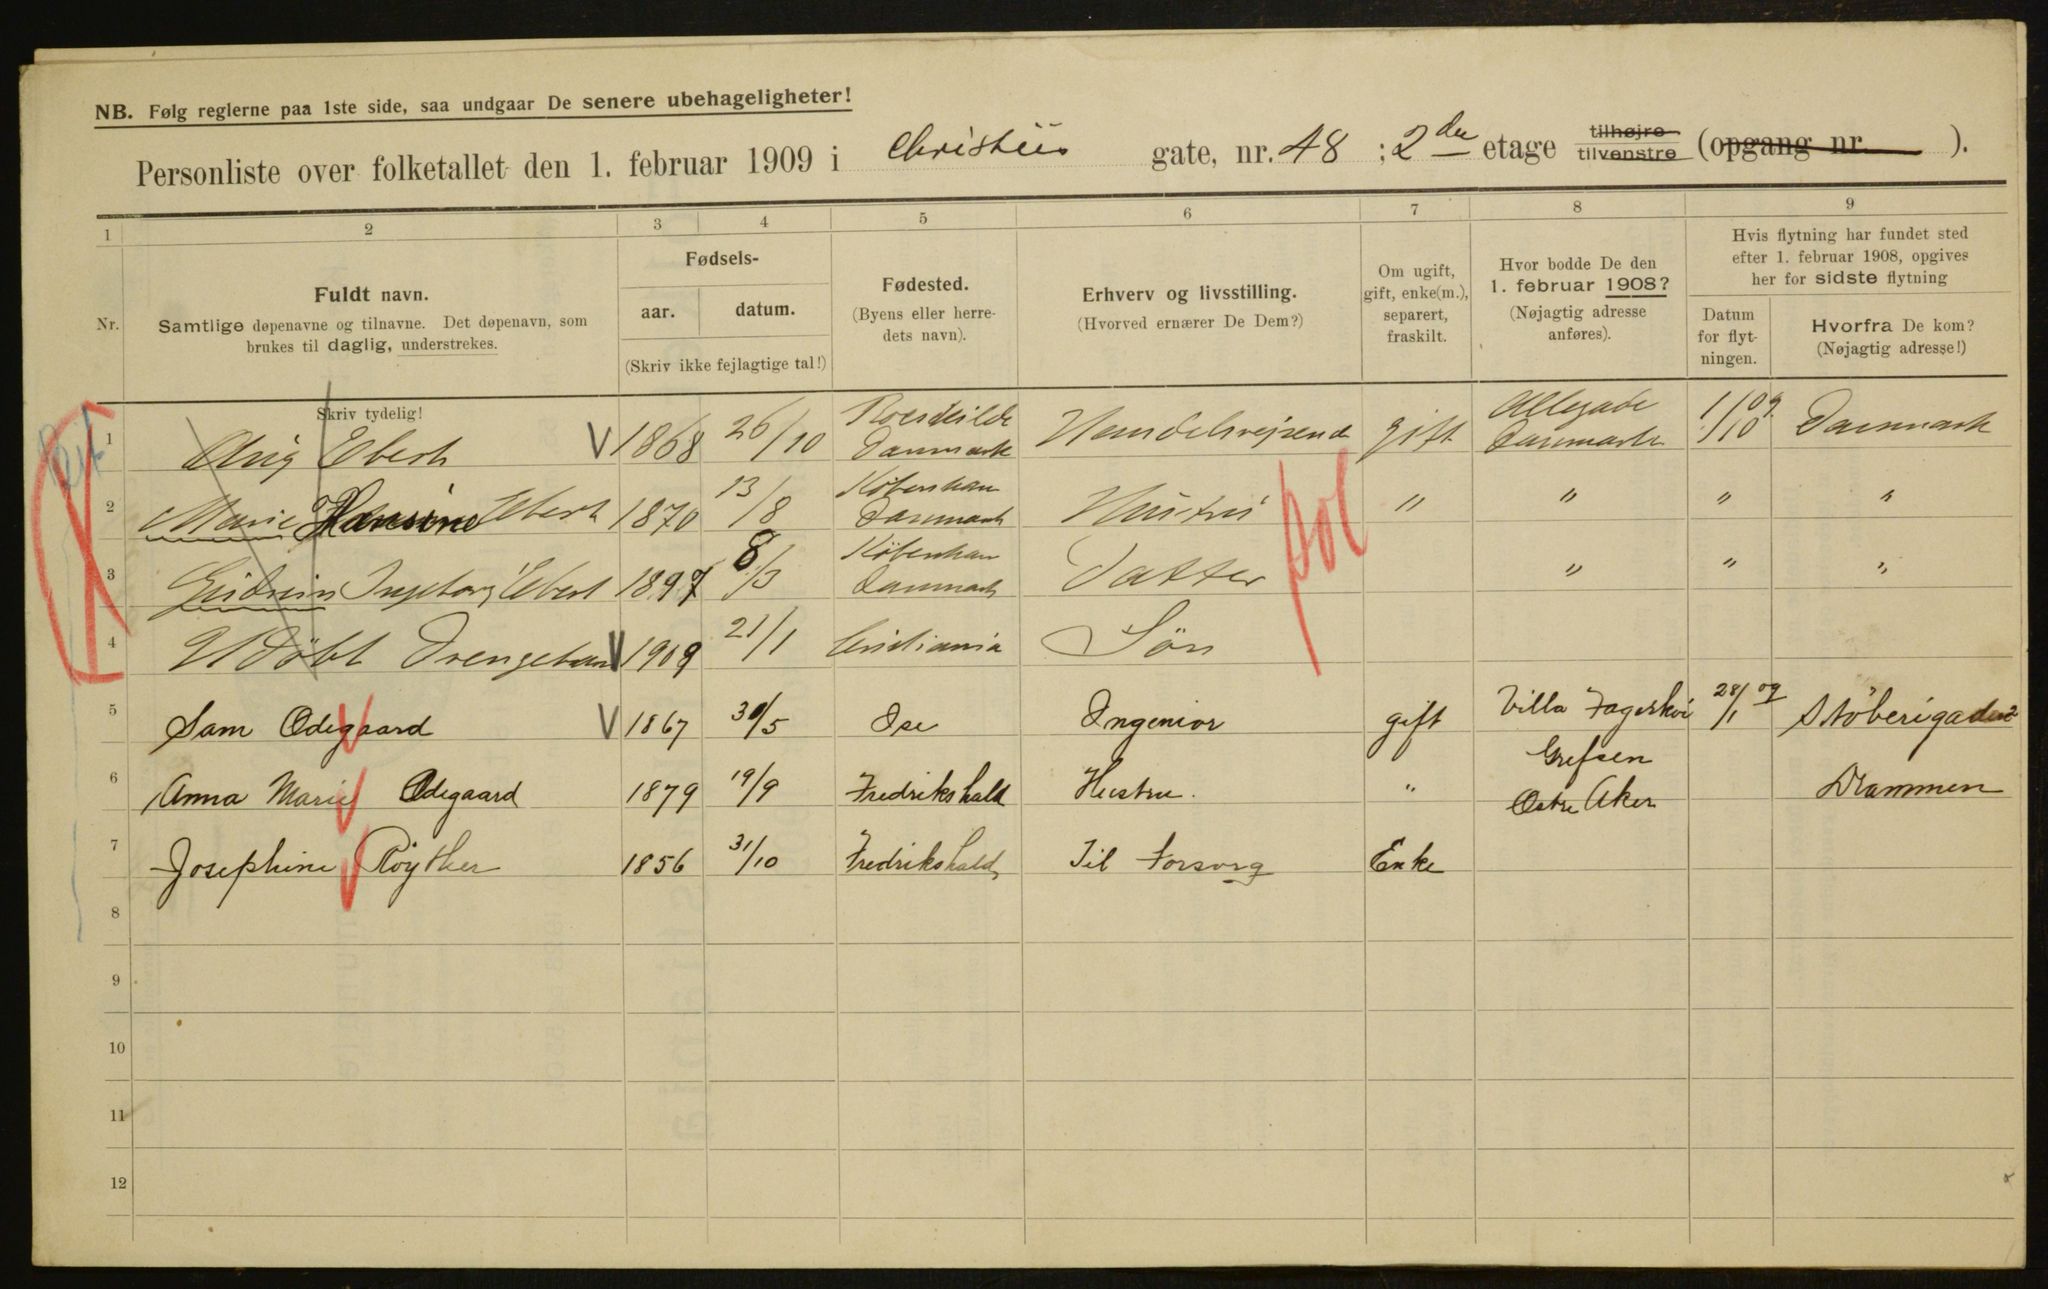 NB. Følg reglerne paa 1ste side, saa undgaar De senere ubehageligheter!
Personliste over folketallet den 1. februar 1909 i Christies gate, nr. 48 ; 2den etage tilhøjre tilvenstre (opgang nr. ).
1 2 3 4 5 6 7 8 9
Nr.
Fuldt navn.
Samtlige døpenavne og tilnavne. Det døpenavn, som
brukes til daglig, understrekes.
Skriv tydelig!
Fødsels-
aar. datum.
(Skriv ikke fejlagtige tal!)
Fødested.
(Byens eller herre-
dets navn).
Erhverv og livsstilling.
(Hvorved ernærer De Dem?)
Om ugift,
gift, enke(m.),
separert,
fraskilt.
Hvor bodde De den
1. februar 1908?
(Nøjagtig adresse
anføres).
Hvis flytning har fundet sted
efter 1. februar 1908, opgives
her for sidste flytning
Datum
for flyt-
ningen.
Hvorfra De kom?
(Nøjagtig adresse!)
1 Ebert V 1868 26/10 Roeskilde Danmark Handelsrejsende gift Allegade Danmark Danmark
2 Marie Hansine Ebert 1870 13/8 København Danmark Hustru " " " "
3 Ingeborg Ebert 1897 8/3 København Danmark Datter " " "
4 Udöbt Drengebarn V 1909 21/1 Cristiania Sön
5 Sam Ödegaard V 1867 30/5 Ise Ingeniör gift Villa Fagerhøi 28/1 09 Stöberigaden 2
6 Anna Marie Ödegaard 1879 19/9 Fredrikshald Hustru. " Grefsen Östre Aker Drammen
7 Josephine Röyther 1856 31/10 Fredrikshald Til Forsorg Enke
8
9
10
11
12